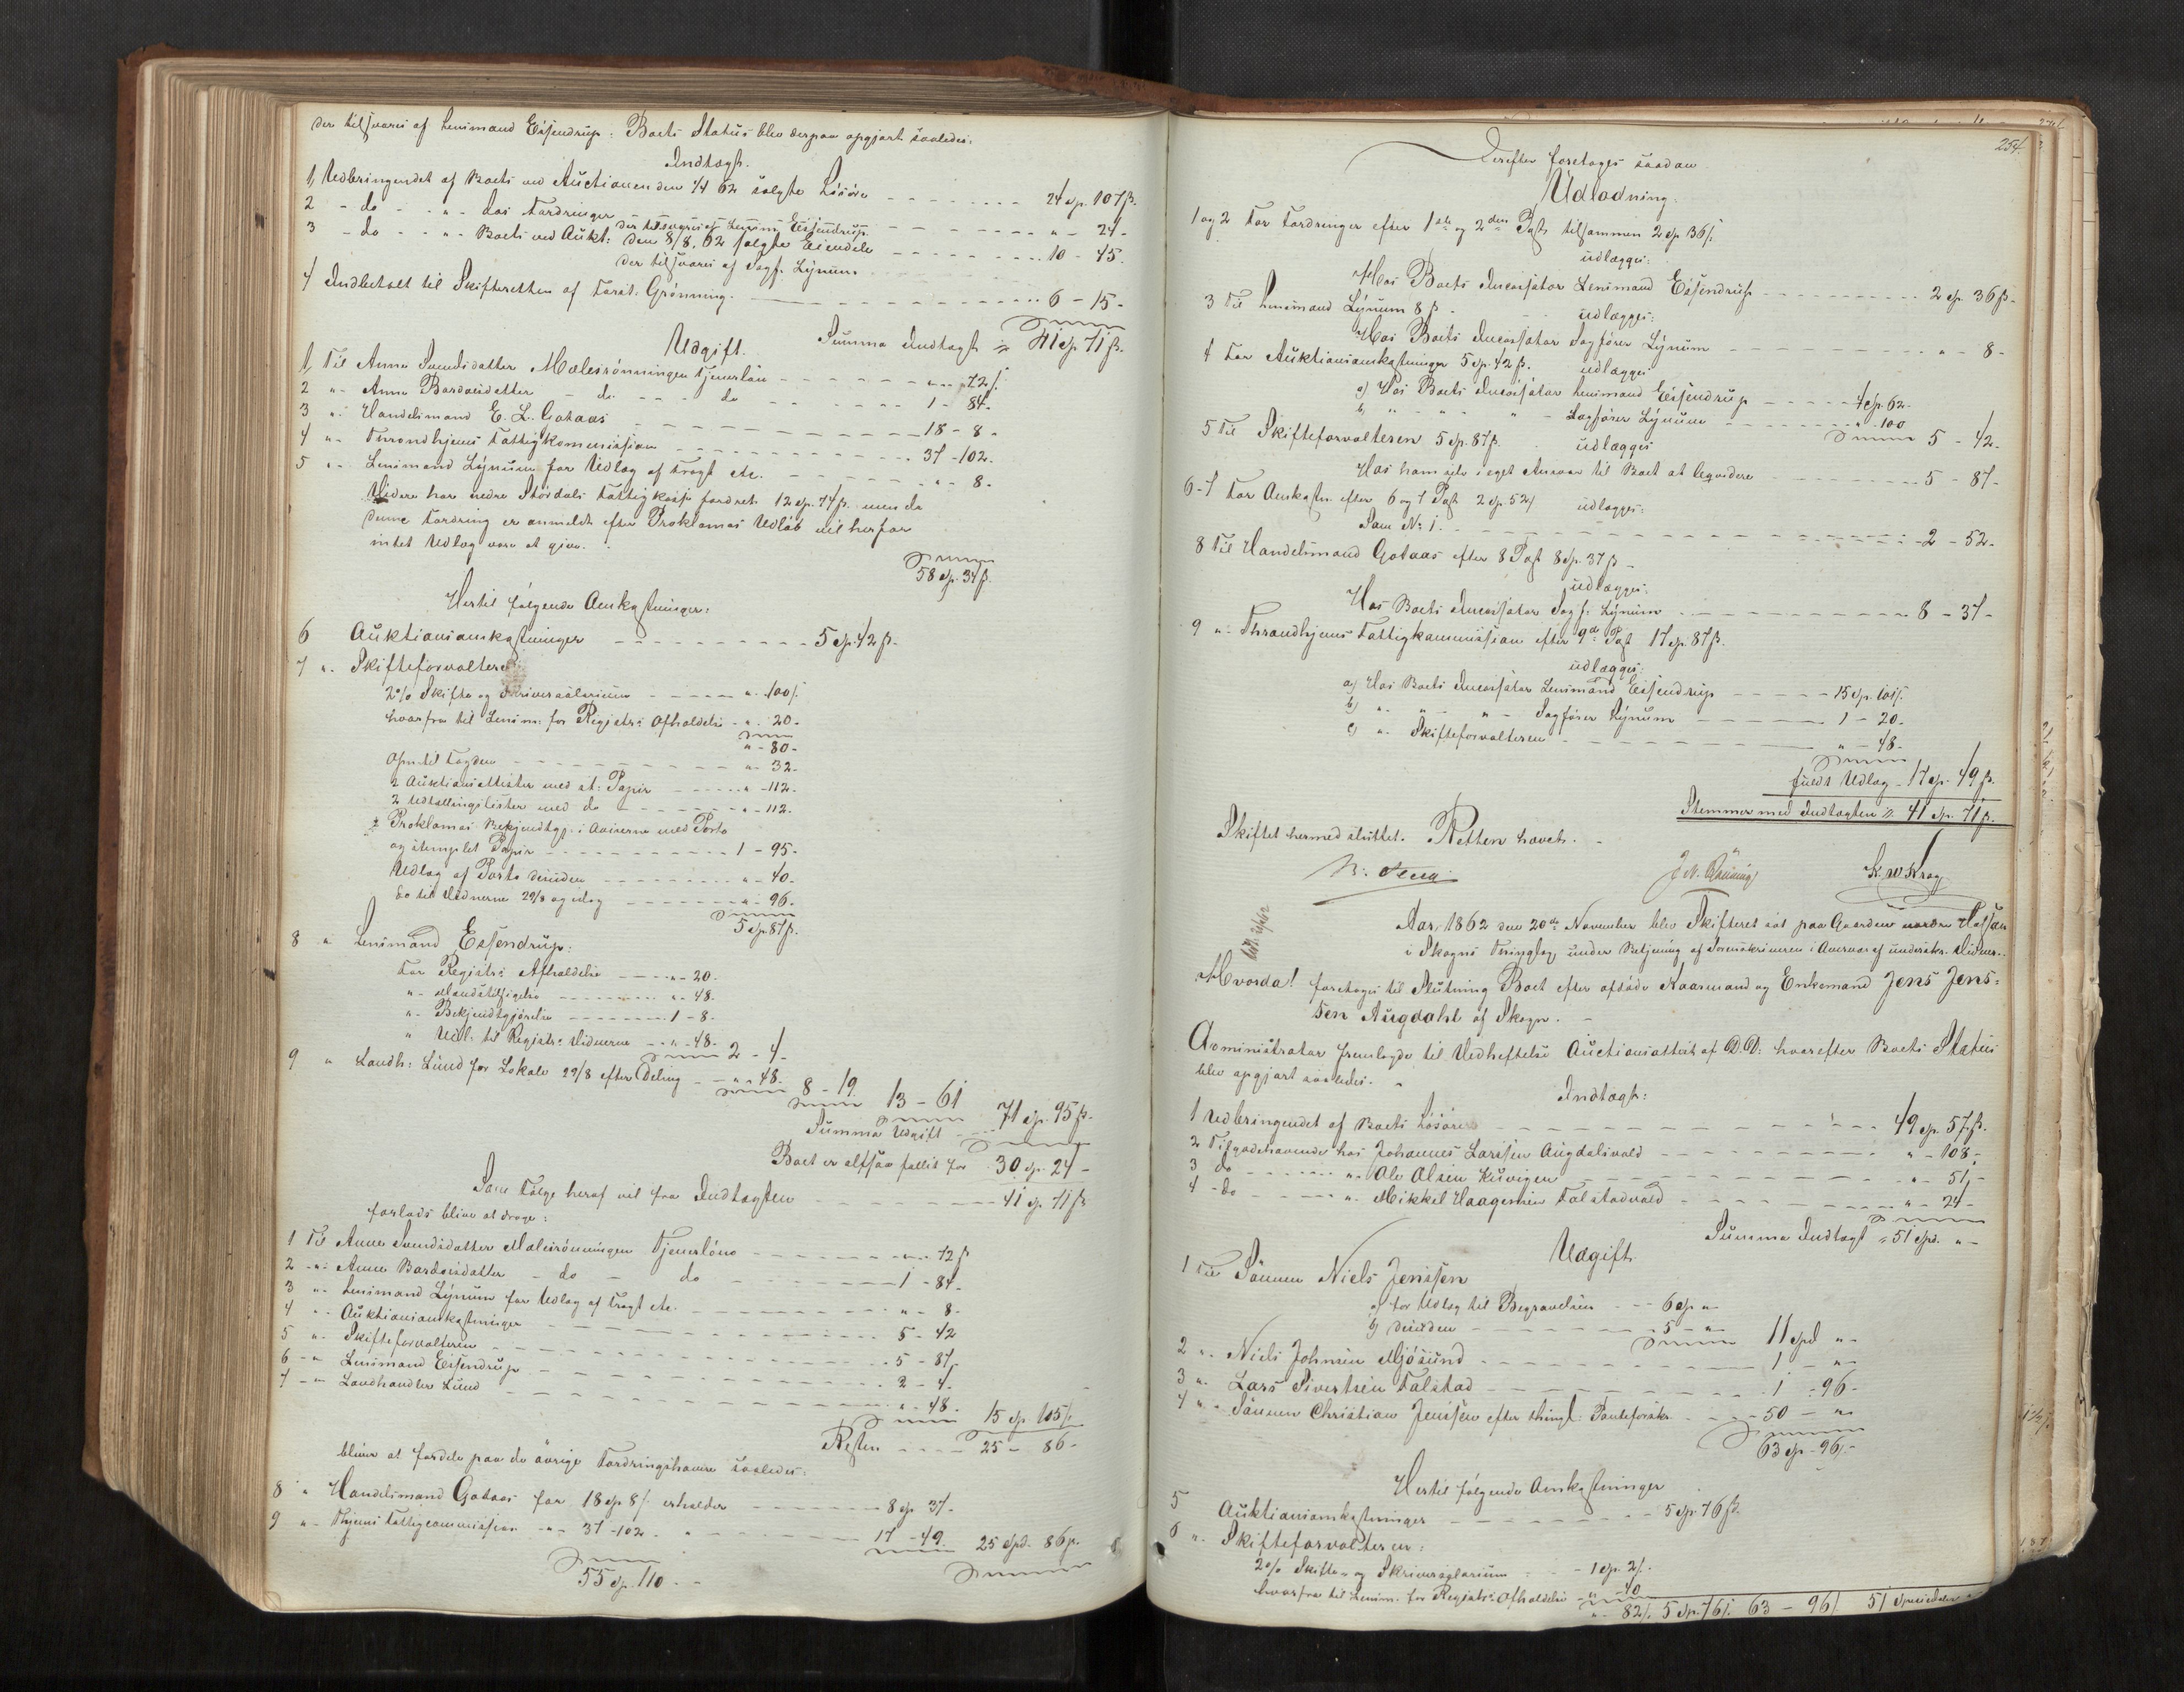 der tilsvares af Lensmand Eissendrup: Boets Status blev derpaa opgjort saaledes:
Indtægt.
1, Udbringendet af Boets ved Auctionen den 1/4 62 solgte Løsøre - - - - 24 sp. 107 ß.
2 - do - - " - dos Fordringer der tilsvares af Lensm: Eissendrup - - - - " - 24 -
3 - do - - " - Boets ved Aukt: den 8/8. 62 solgte Eiendele - - - - 10 - 45.
der tilsvares af Sagf. Lynum
4 Indbetalt til Skifteretten af Forst: Grønning. - - - - 6 - 15 -
Summa Indtægt = 41 sp 71 ß.
Udgift.
1, Til Anne Svendsdatter Malesrønningen Tjenerløn - - - - " - 72 ß.
2 "- Anne Bardosdatter - do - - - do - - - - 1 - 84 -
3 "- Handelsmand E. L. Gotaas - - - - 18 - 8 -
4 "- Throndhjems Fattigkommission - - - - 37 - 102 -
5 "- Lensmand Lynum for Udlæg af Fragt etc. - - - - " - 8 -
Videre har nedre Stördals Fattigkasse fordret 12 sp. 74 ß. men da
denne Fordring er anmeldt efter Proklamas Udløb vil herfor
intet Udlæg være at give.
58 sp. 34 ß.
Hertil følgende Omkostninger:
6 Auktionsomkostninger - - - - 5 sp. 42 ß.
7 ". Skifteforvalteren
2% Skifte og Skriversalarium - - - " - 100 ß.
hvorfra til Lensm: for Registr: Afholdelse - " - 20 -
" - 80 -
Opm til Fogden - - - - " - 32 -
2 Auktionsattester med st: Papir - - - " - 112 -
2 Udtællingslister med do - - - " - 112 -
Proklamas Bekjendtgj. i Aviserne med Porto
og stemplet Papir - - - - 1 - 95 -
Udlæg af Porto desuden - - - - " - 40 -
do til Vidnerne 29/8 og idag - - - - " - 96 -
5 sp. 87 ß.
8 " Lensmand Eissendrup:
For Registr: Afholdelse - - - " - 20 -
" - Mandstilsigelse - - - " - 48 -
" - Bekjendtgjørelse - - - 1 - 8 -
" Udl: til Registr: Vidnerne - - " - 48 -
2 - 4 -
9 " Landh: Lund for Lokale 29/8 efter Deling - - " - 48 -
8 - 19 13 - 61
71 sp. 95 ß.
Summa Udgift
Boet er altsaa fallit for 30 sp. 24 -
Som Følge heraf vil fra Indtægten - - - 41 sp 71 ß
forlods blive at drage:
1 Til Anne Svendsdatter Malesrönningen Tjenerlöns - - - " - 72 ß
2 -"- Anne Bardosdatter - do - do - - - 1 - 84 -
3 "- Lensmand Lynum for Udlæg af Fragt etc. - - - " - 8 -
4 "- Auktionsomkostninger - - - 5 - 42
5 "- Skifteforvalteren - - - 5 - 87,
6 -"- Lensmand Eissendrup - - - 2 - 4 -
7 -"- Landhandler Lund - - - " - 48 -
15 sp 105 ß.
Resten - - - 25 - 86 -
bliver at fordele paa de øvrige Fordringshavere saaledes:
8 " Handelsmand Gotaas for 18 sp 8 ß. erholder - - - 8 sp 37 -
9 "- Thjems Fattigcommission -"- 37 - 102 - " - - - 17 - 49. 25 spd. 86 ß.
55 sp. 110 -
254.
Derefter foretoges saadan
Udlodning.
1 og 2 For Fordringer efter 1ste og 2den Post tilsammen 2 sp 36 ß.
udlægges:
Hos Boets Incassator Lensmand Eissendrup - - - 2 sp. 36 ß -
3 Til Lensmand Lynum 8 ß - udlægges:
Hos Boets Incassator Sagfører Lynum - - - " - 8 -
4 For Auktionsomkostninger 5 sp. 42 ß. udlægges
a) Hos Boets Incassator Lensmand Eissendrup - - - 4 sp. 62 -
b) " - " - " - Sagfører Lynum - - - " - 100
5 - 42 -
5 Til Skifteforvalteren 5 sp. 87 ß. udlægges
Hos ham selv i eget Ansvar til Boet at liqvidere - - - 5 - 87 -
6-7 For Omkostn. efter 6 og 7 Post 2 sp. 52 ß udlægges:
Som No 1. - - - 2 - 52 -
8 Til Handelsmand Gotaas efter 8 Post 8 sp. 37 ß -
udlægges:
Hos Boets Incassator Sagf: Lynum - - - 8 - 37 -
9 "- Throndhjems Fattigkommission efter 9de Post 17 sp. 87 ß.
udlægges:
a) Hos Boets Incassator Lensmand Eissendrup - - - 15 sp. 101 ß.
b) " - " - " - Sagfører Lynum - - - 1 - 20 -
c) " Skifteforvalteren - - - " - 48 -
fuldt Udlæg - 17 sp. 49 ß.
Stemmer med Indtægten = 41 sp. 71 ß.
Skiftet hermed sluttet. Retten hævet. -
K. W Krog
Aar 1862 den 20de November blev Skifteret sat paa Gaarden nordre Holsan
i Skogns Thinglag under Betjening af Sorenskriveren i Overvær af underskr. Vidner.
Hvorda! foretoges til Slutning Boet efter afdøde Kaarmand og Enkemand Jens Jens-
sen Augdahl af Skogn. -
Administrator fremlagde til Vedheftelse Auctionsattest af D.D: hvorefter Boets Status
blev opgjort saaledes.
Indtægt:
1 Udbringendet af Boets Løsøre - - - 49 sp. 57 ß.
2 Tilgodehavende hos Johannes Larssen Augdalsvald - - - " - 108 -
3 do - - - "- Ole Olsen Kuvigen - - - " - 51 -
4 - do - - - "- Mikkel Haagensen Falstadvald - - - " - 24 -
Summa Indtægt = 51 spd. " -
Udgift
1 Til Sønnen Niels Jenssen
a) for Udlæg til Begravelsen - - 6 sp " -
b) desuden - - - 5 - " -
11 spd " -
2 " - Niels Johnsen Mjösund - - - 1 - " -
3 " - Lars Sivertsen Falstad - - - 1 - 96 -
4 " - Sønnen Christian Jenssen efter thingl: Panteforskr. - - 50 - " -
63 sp - 96 ß -
Hertil følgende Omkostninger
5 Auktionsomkostninger - - - 5 sp. 76 ß.
6 " - Skifteforvalteren:
2% Skifte- og Skriversalarium - - 1 sp. 2 ß. -
hvorfra til Lensm. for Registr: Afholdelse - " - 40
" - 82 ß. 5 sp. 76 ß. 63 - 96 ß. 51 Speciedaler